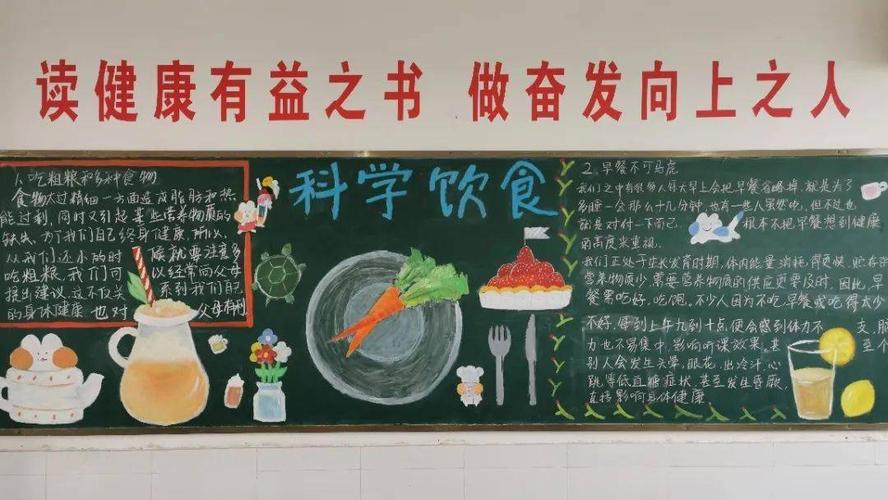 读健康有益之书 做奋发向上之人
科学饮食
1、吃粗粮和多种食物
食物太过精细一方面造成脂肪和热
能过剩，同时又引起某些营养物质的
缺失、为了我们自己终身健康，所以、
从我们还小的时候就要注意多
吃粗粮，我们可以经常向父母
提出建议，这不仅关系到我们自己
的身体健康 也对父母有利
2、早餐不可马虎
我们之中有很多人每天早上会把早餐省略掉，就是为了
多睡一会那么十几分钟，也有一些人虽然吃，但不过也
就是对付一下而已 根本不把早餐想到健康
的高度来重视。
我们正处于生长发育时期，体内能量消耗得更快，贮存的
营养物质少，需要营养物质的供应更要及时，因此，早
餐要吃好，吃饱，不少人因为不吃早餐或吃得太少
不好，每到上午九到十点，便会感到体力不支，脑
力也不易集中，影响听课效果。甚至个
别人会发生头晕，眼花，出冷汗，心
跳等低血糖症状，甚至发生昏厥，
直接影响身体健康